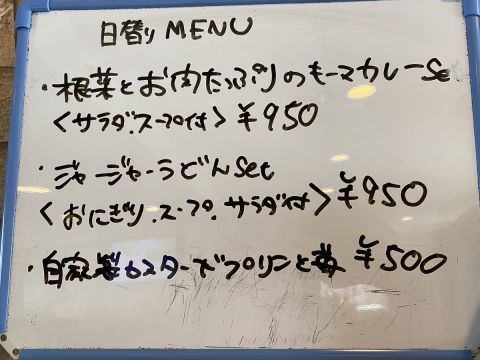 日替り MENU
・根菜とお肉たっぷりのキーマカレーSe
<サラダ.スープ付>¥950
・ジャージャーうどんSet
<おにぎり.スープ.サラダ付>¥950
・自家製カスタードプリンと苺 ¥500